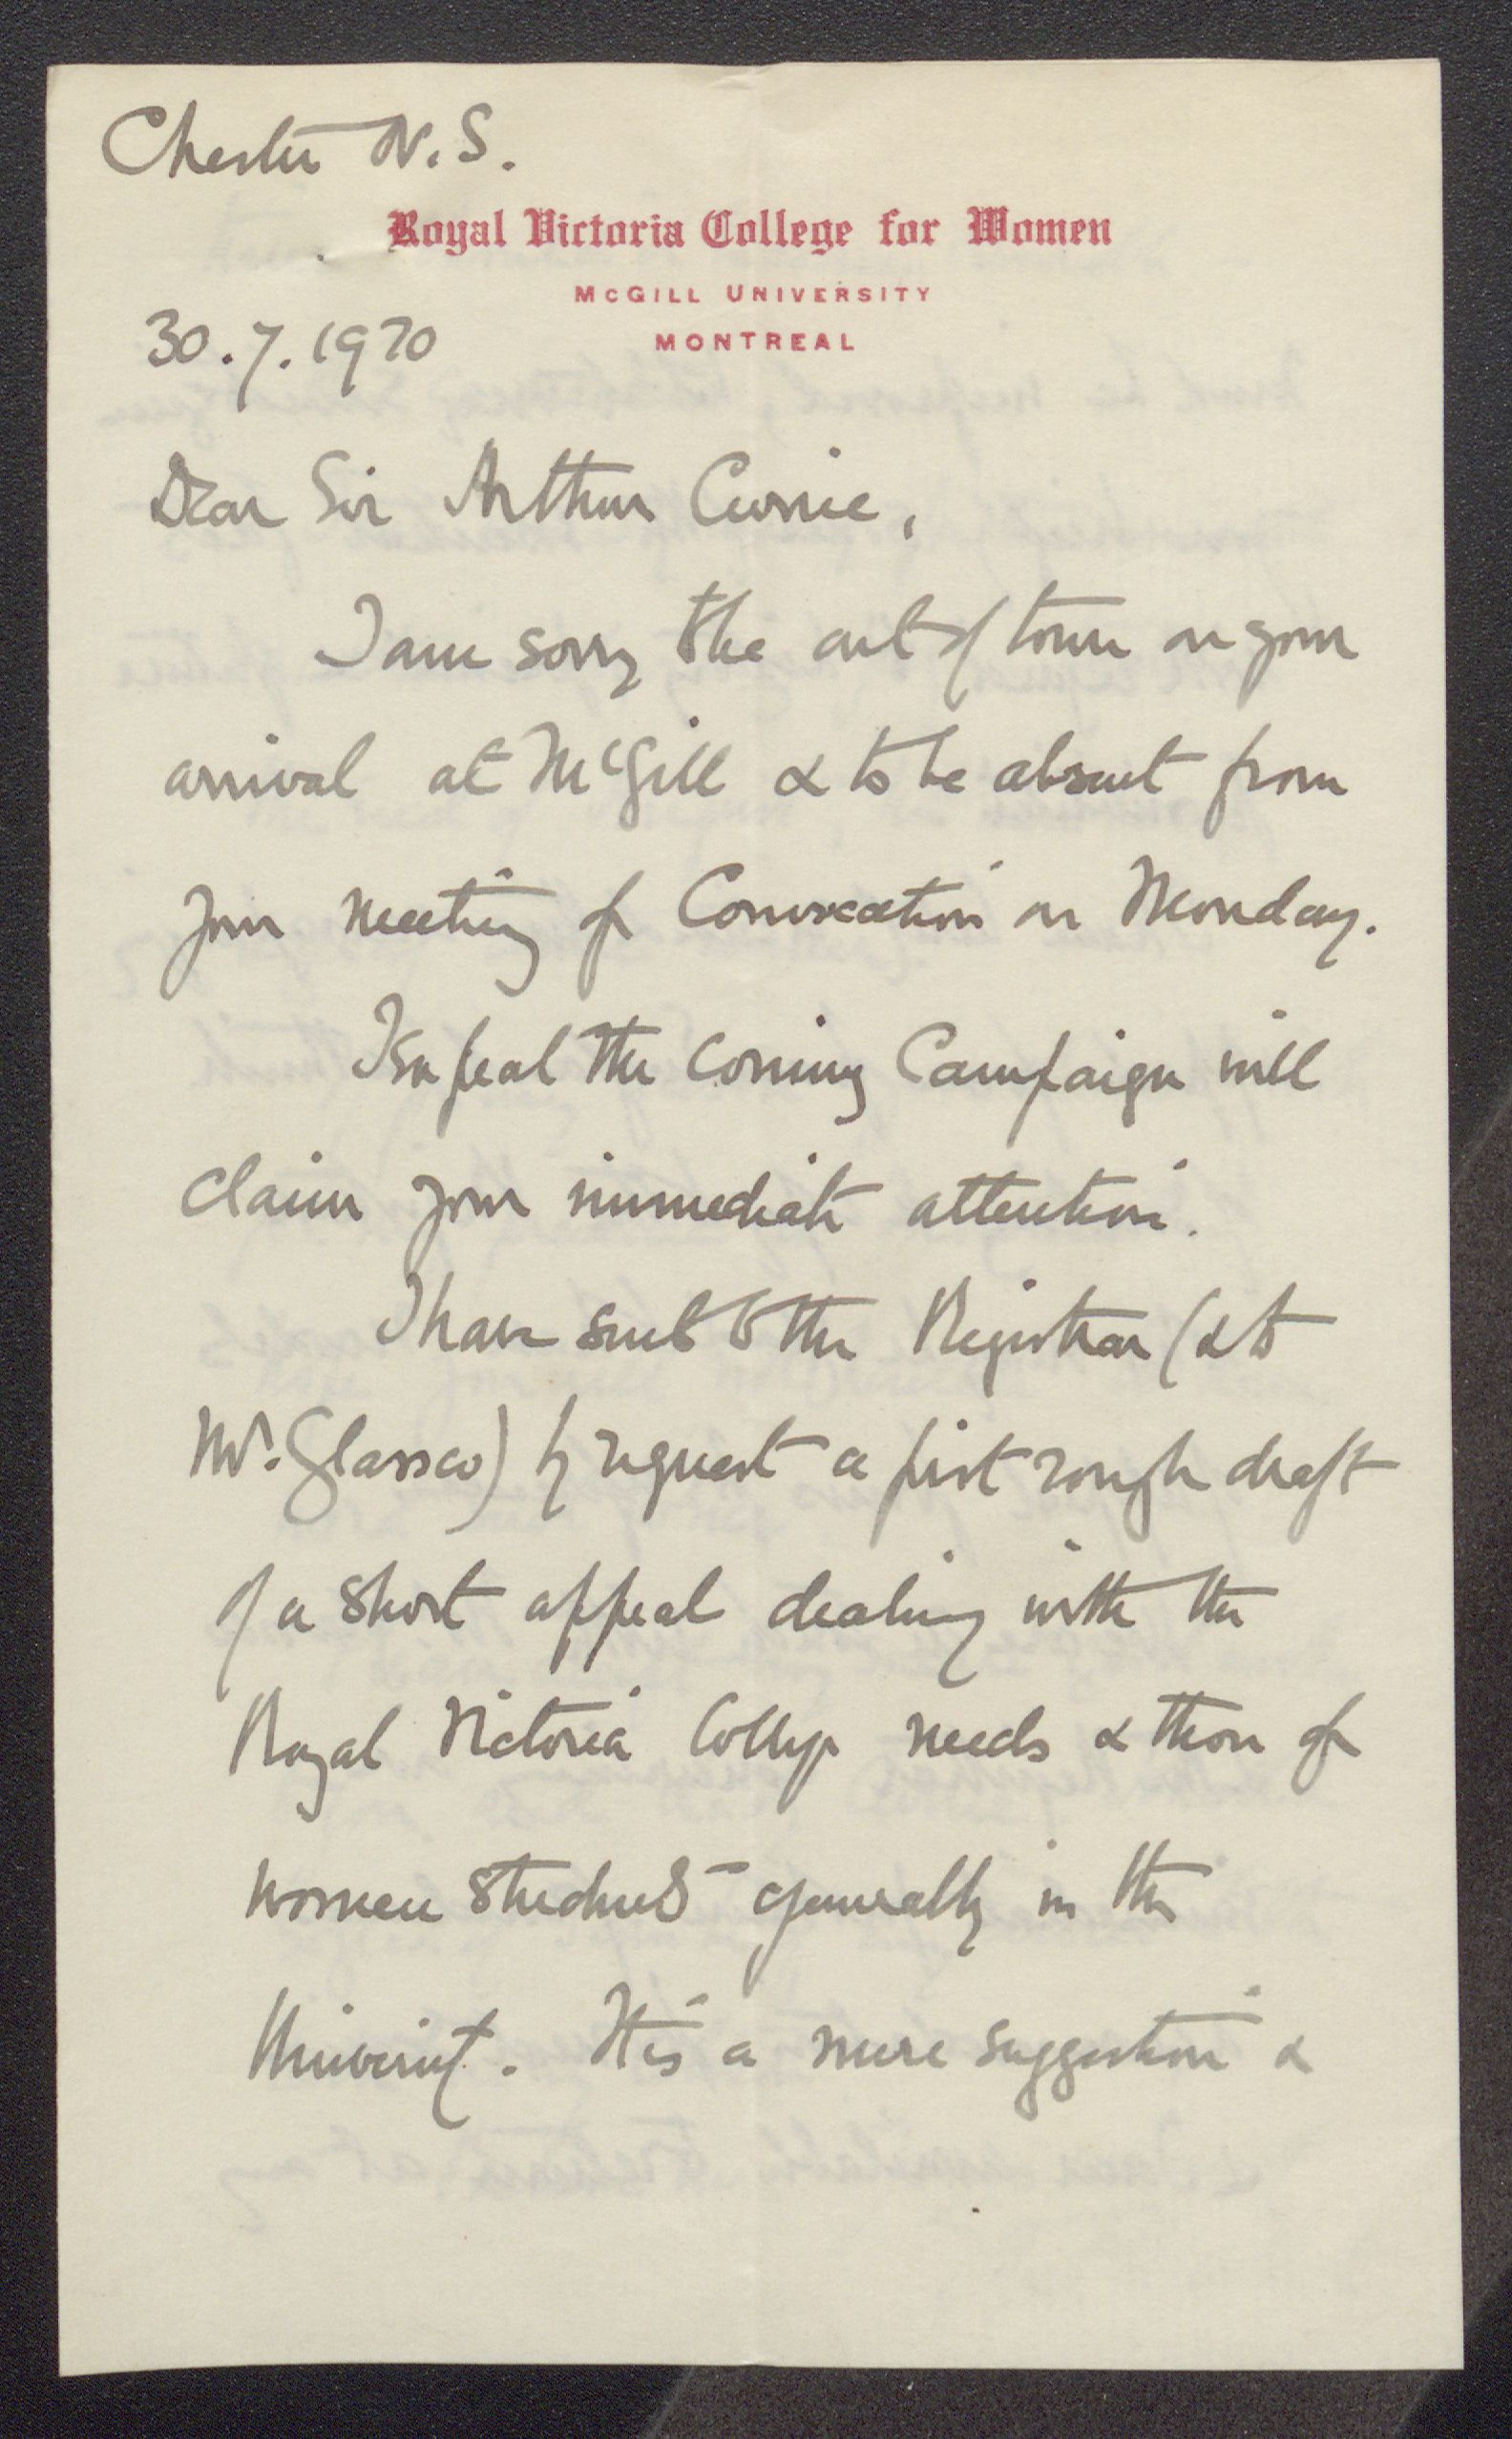 Chester N.S.
Royal Victoria College for Women
McGILL UNIVERSITY
30.7.1920 MONTREAL
Dear Sir Arthur Currie,
I am sorry to be out of town on your
arrival at McGill & to be absent from
your meeting of Convocation on Monday.
I feel the coming Campaign will
claim your immediate attention.
I have sent to the Registrar (& to
Mr. Glassco) by request a first rough draft
of a short appeal dealing with the
Royal Victoria College needs & those of
women students generally in the
University. It is a mere suggestion &